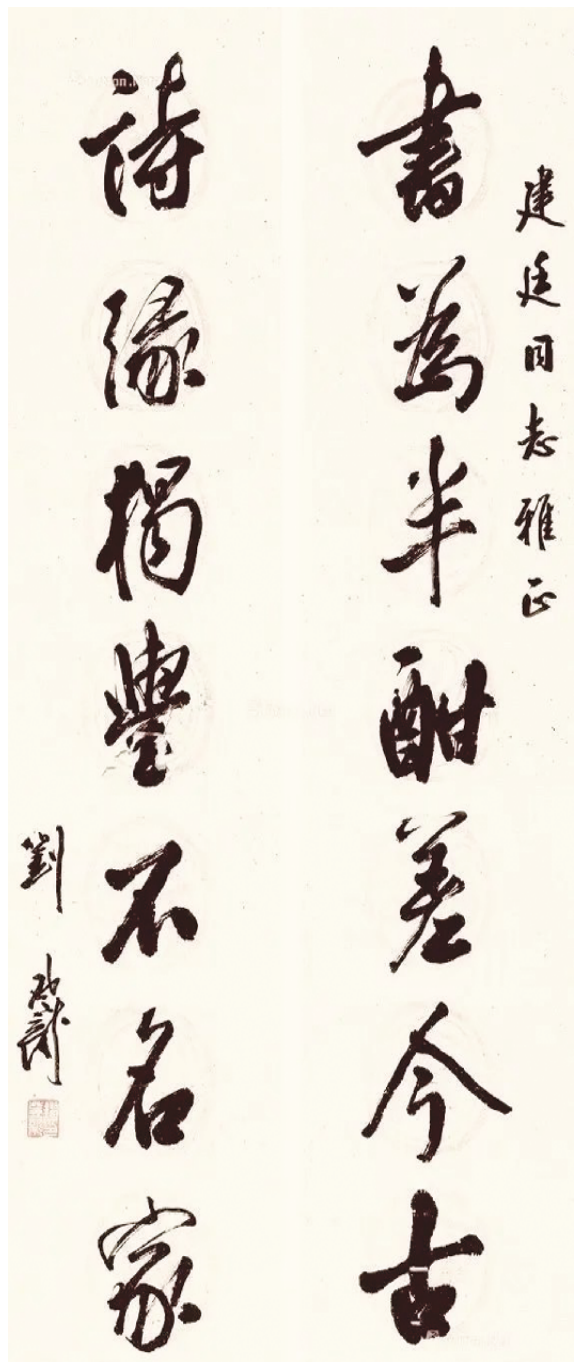 建廷同志雅正
書為半酣差今古
詩緣獨不名家
劉